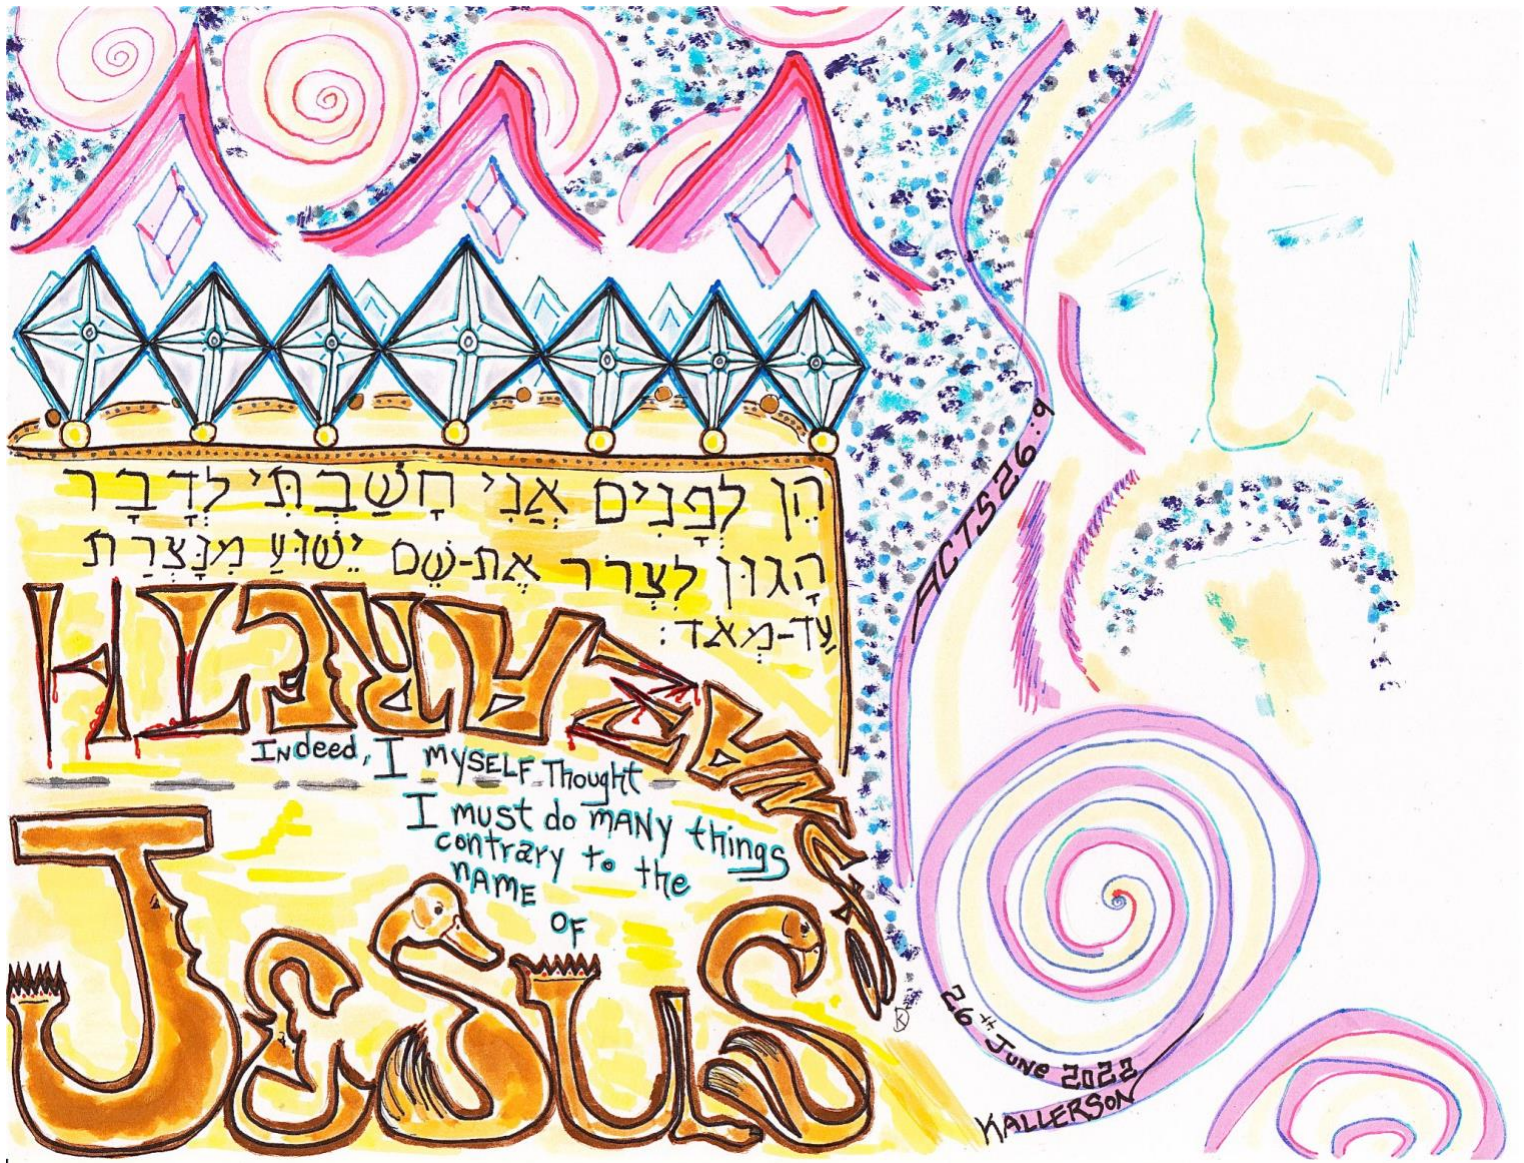 הֵן לְפָנִים אֲנִי חָשַׁבְתִּי לְדָבָר
הָגוּן לִצְרֹר אֶת-שֵׁם יֵשׁוּעַ מִנָּצְרַת
עַד-מְאֹד:
Indeed, I MYSELF Thought
I must do MANY things
contrary to the
NAME
OF
JESUS
OF NAZARETH
ACTS 26:9
26th June 2022
KALLERSON